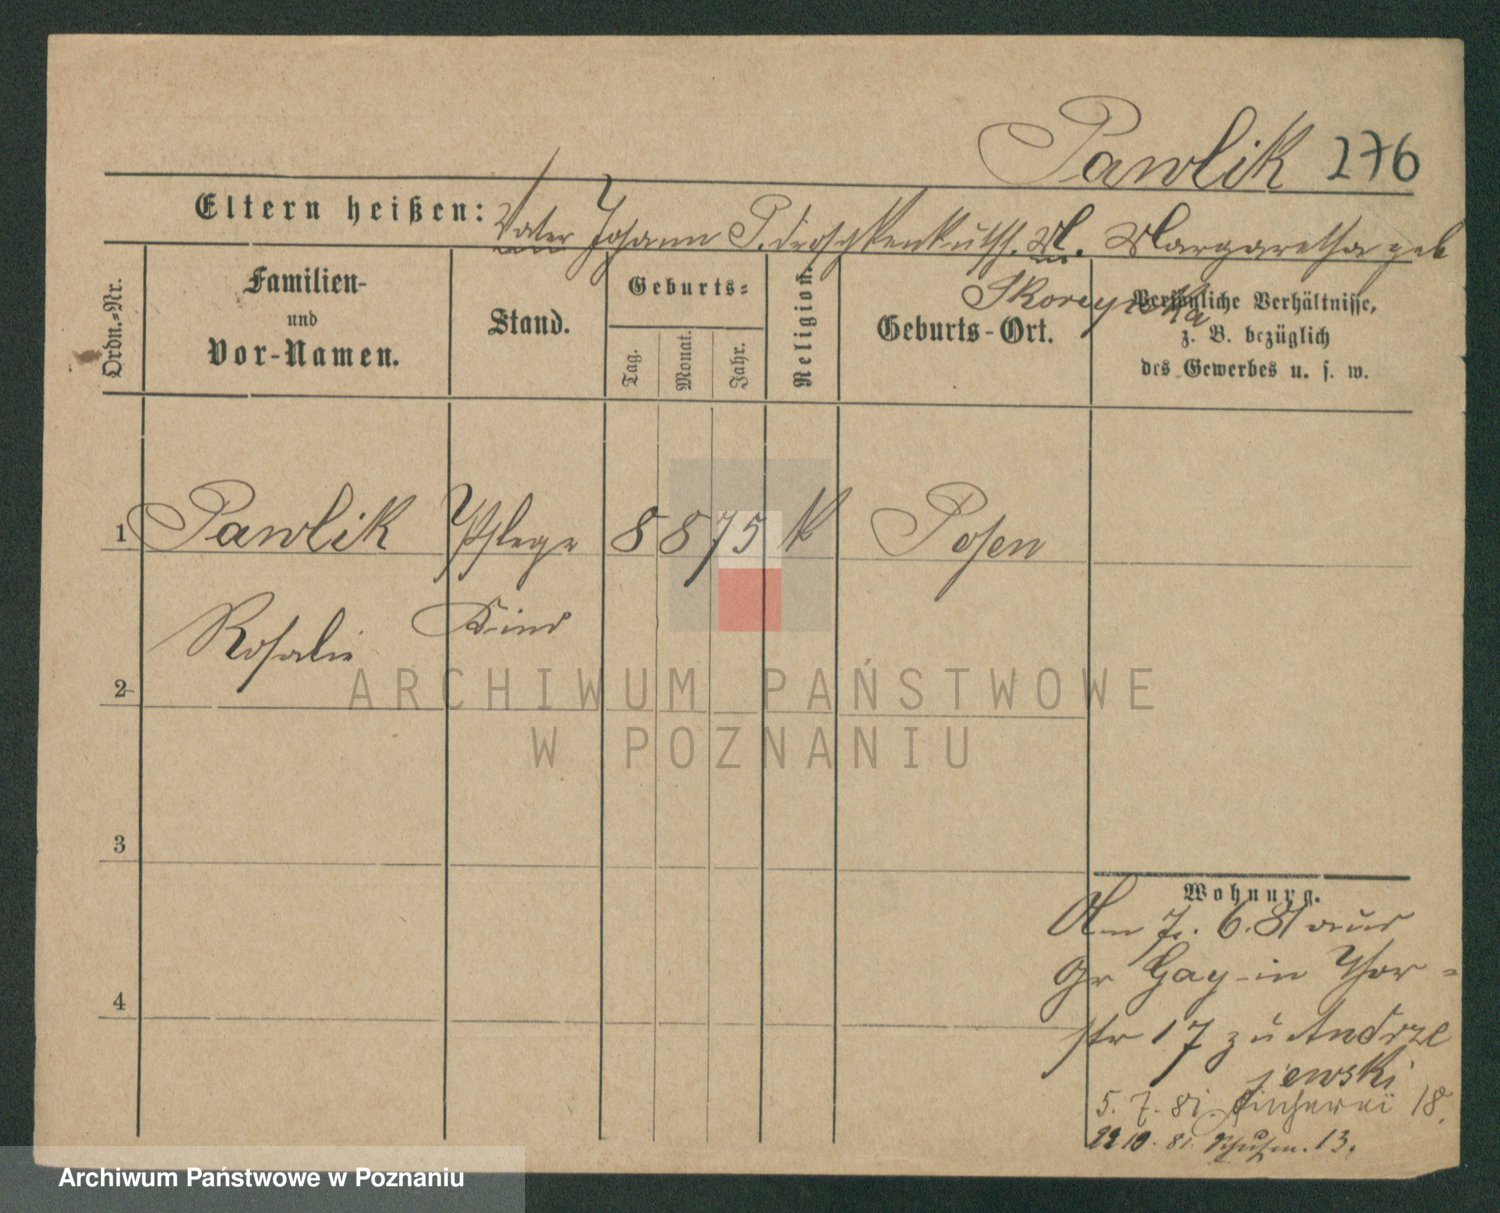 Pawlik 276
Eltern heißen: Vater Johann P. Droschkenkutsch. M. Margaretha geb
Ordn.-Nr.
Familien-
und
Vor-Namen.
Stand.
Geburts-
Tag.
Monat.
Jahr.
Religion.
Geburts-Ort.
Persönliche Verhältnisse,
z. B. bezüglich
des Gewerbes u. s. w.
1 Pawlik Pflege 8 8 75 K Posen
Rosalie Kind
2
3
4
Wohnung.
Am 7. 6. 81 aus
Gr Gay in Thor-
str 17 zu Andrze
jewski
5. 7. 81. Fischerei 18.
22 10. 81. 13.
ARCHIWUM PAŃSTWOWE
W POZNANIU
Archiwum Państwowe w Poznaniu